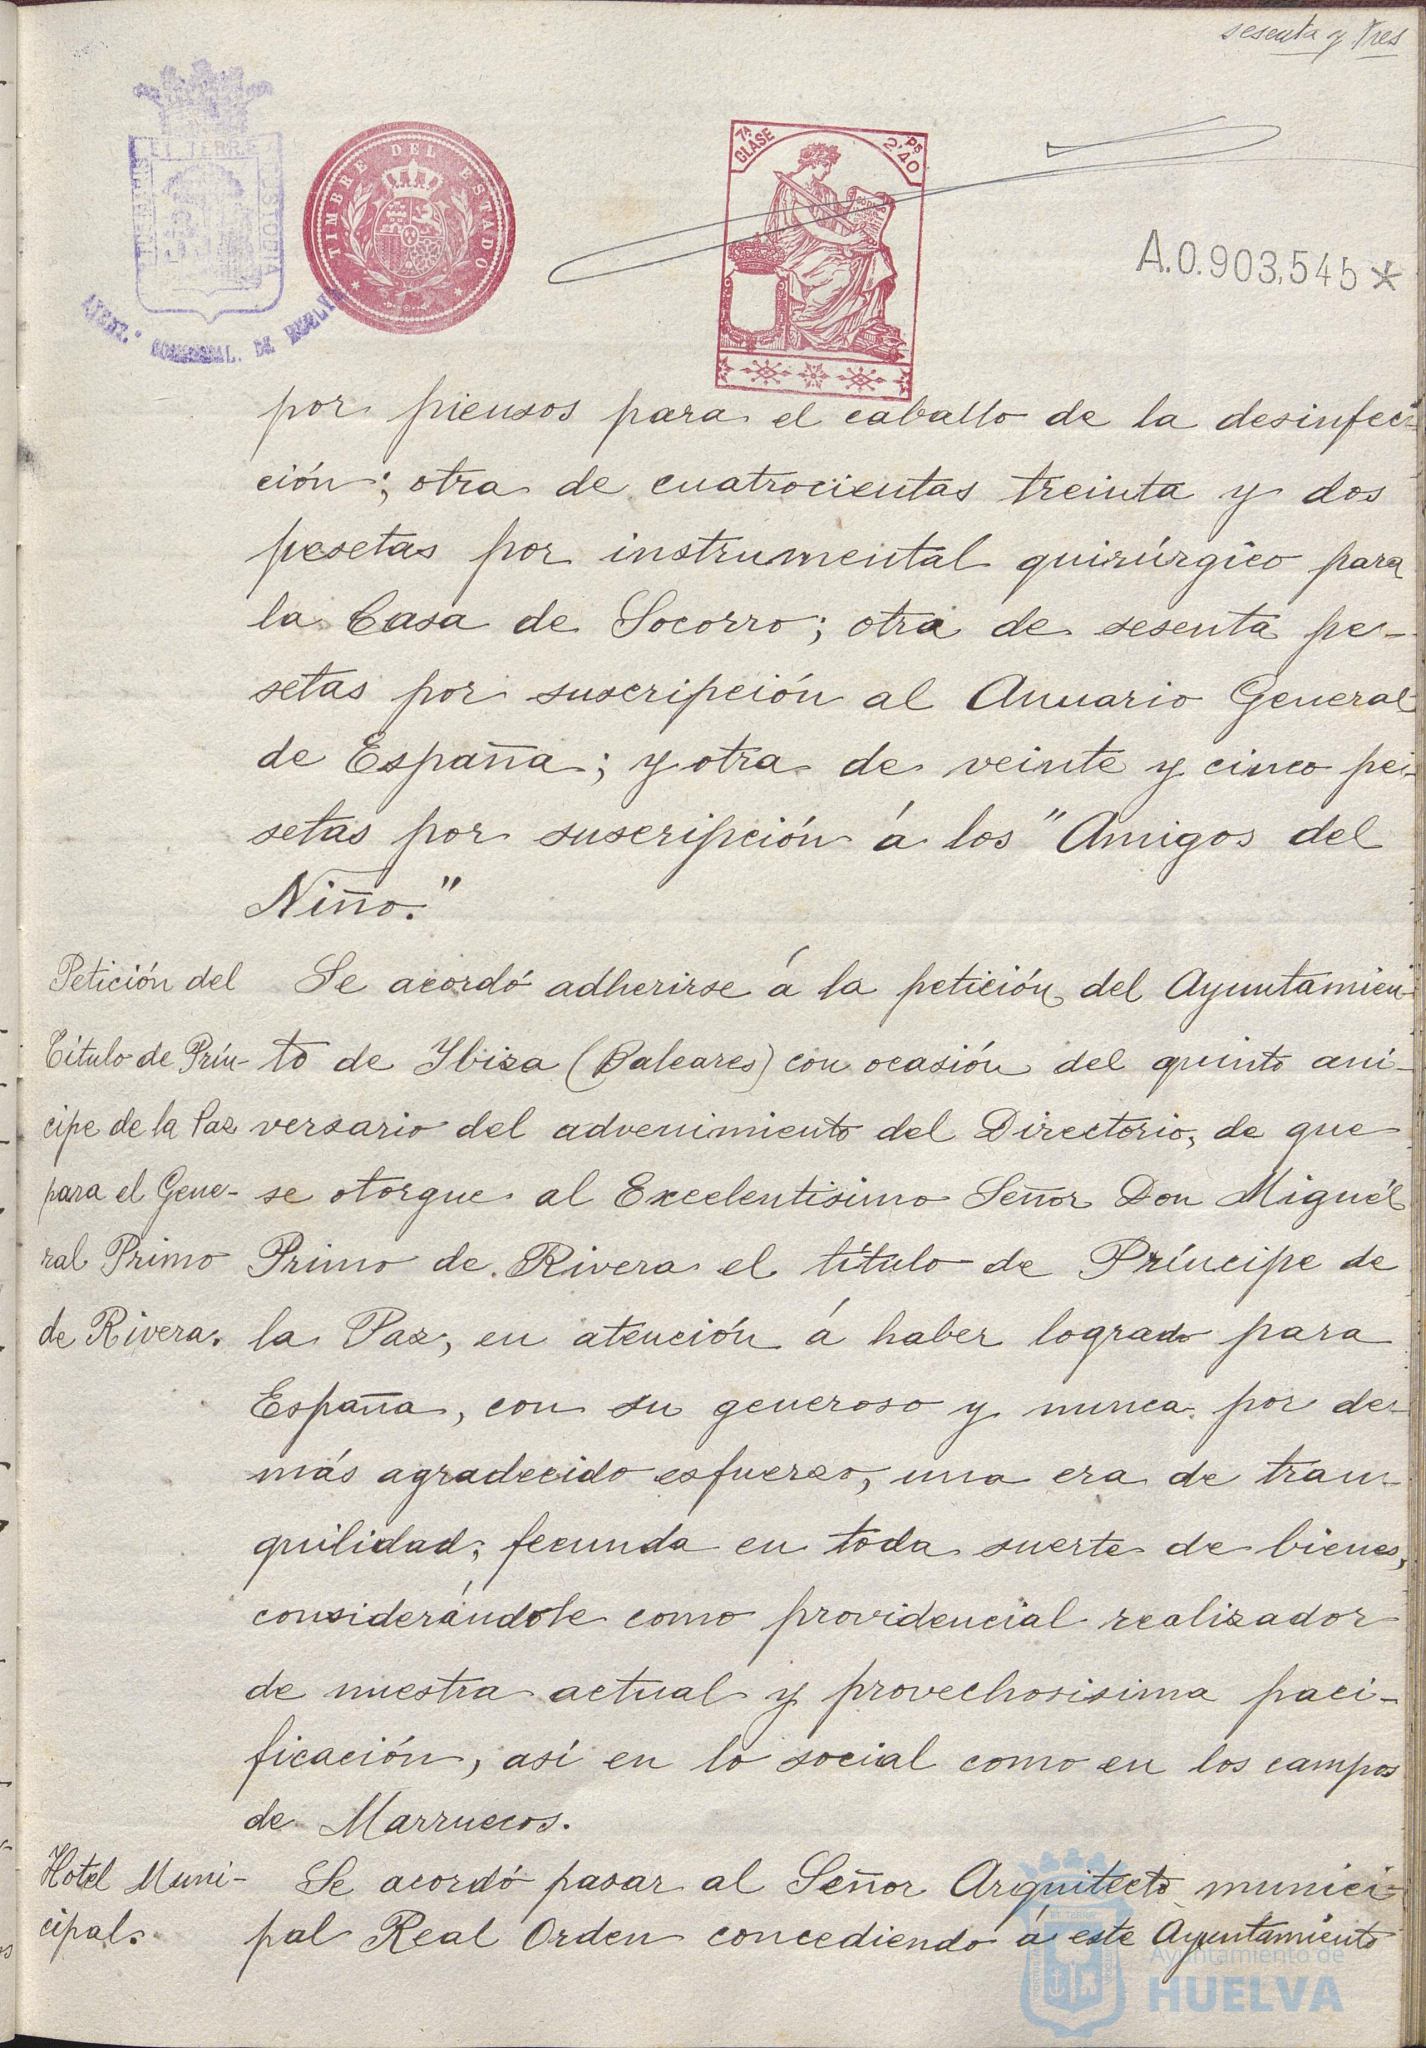 sesenta y tres
TIMBRE DEL ESTADO
7ª CLASE
2'40 Ps
A.0.903,545*
por piensos para el caballo de la desinfec-
ción; otra de cuatrocientas treinta y dos
pesetas por instrumental quirúrgico para
la Casa de Socorro; otra de sesenta pe-
setas por suscripción al Anuario General
de España; y otra de veinte y cinco pe-
setas por suscripción á los "Amigos del
Niño."
Petición del
Título de Prín-
cipe de la Paz
para el Gene-
ral Primo
de Rivera.
Se acordó adherirse á la petición del Ayuntamien-
to de Ybiza (Baleares) con ocasión del quinto ani-
versario del advenimiento del Directorio, de que
se otorgue al Excelentisimo Señor Don Miguél
Primo de Rivera el título de Príncipe de
la Paz, en atención á haber logrado para
España, con su generoso y nunca por de-
más agradecido esfuerzo, una era de tran-
quilidad, fecunda en toda suerte de bienes,
considerándole como providencial realizador
de nuestra actual y provechosisima paci-
ficación, así en lo social como en los campos
de Marruecos.
Hotel Muni-
cipal.
Se acordó pasar al Señor Arquitecto munici-
pal Real Orden concediendo á este Ayuntamiento
Ayuntamiento de
HUELVA